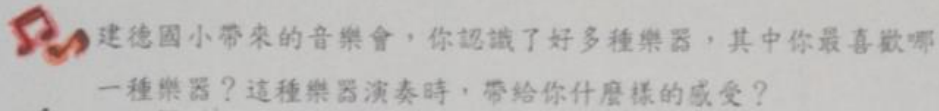 建德國小帶來的音樂會，你認識了好多種樂器，其中你最喜歡哪
一種樂器？這種樂器演奏時，帶給你什麼樣的感受？